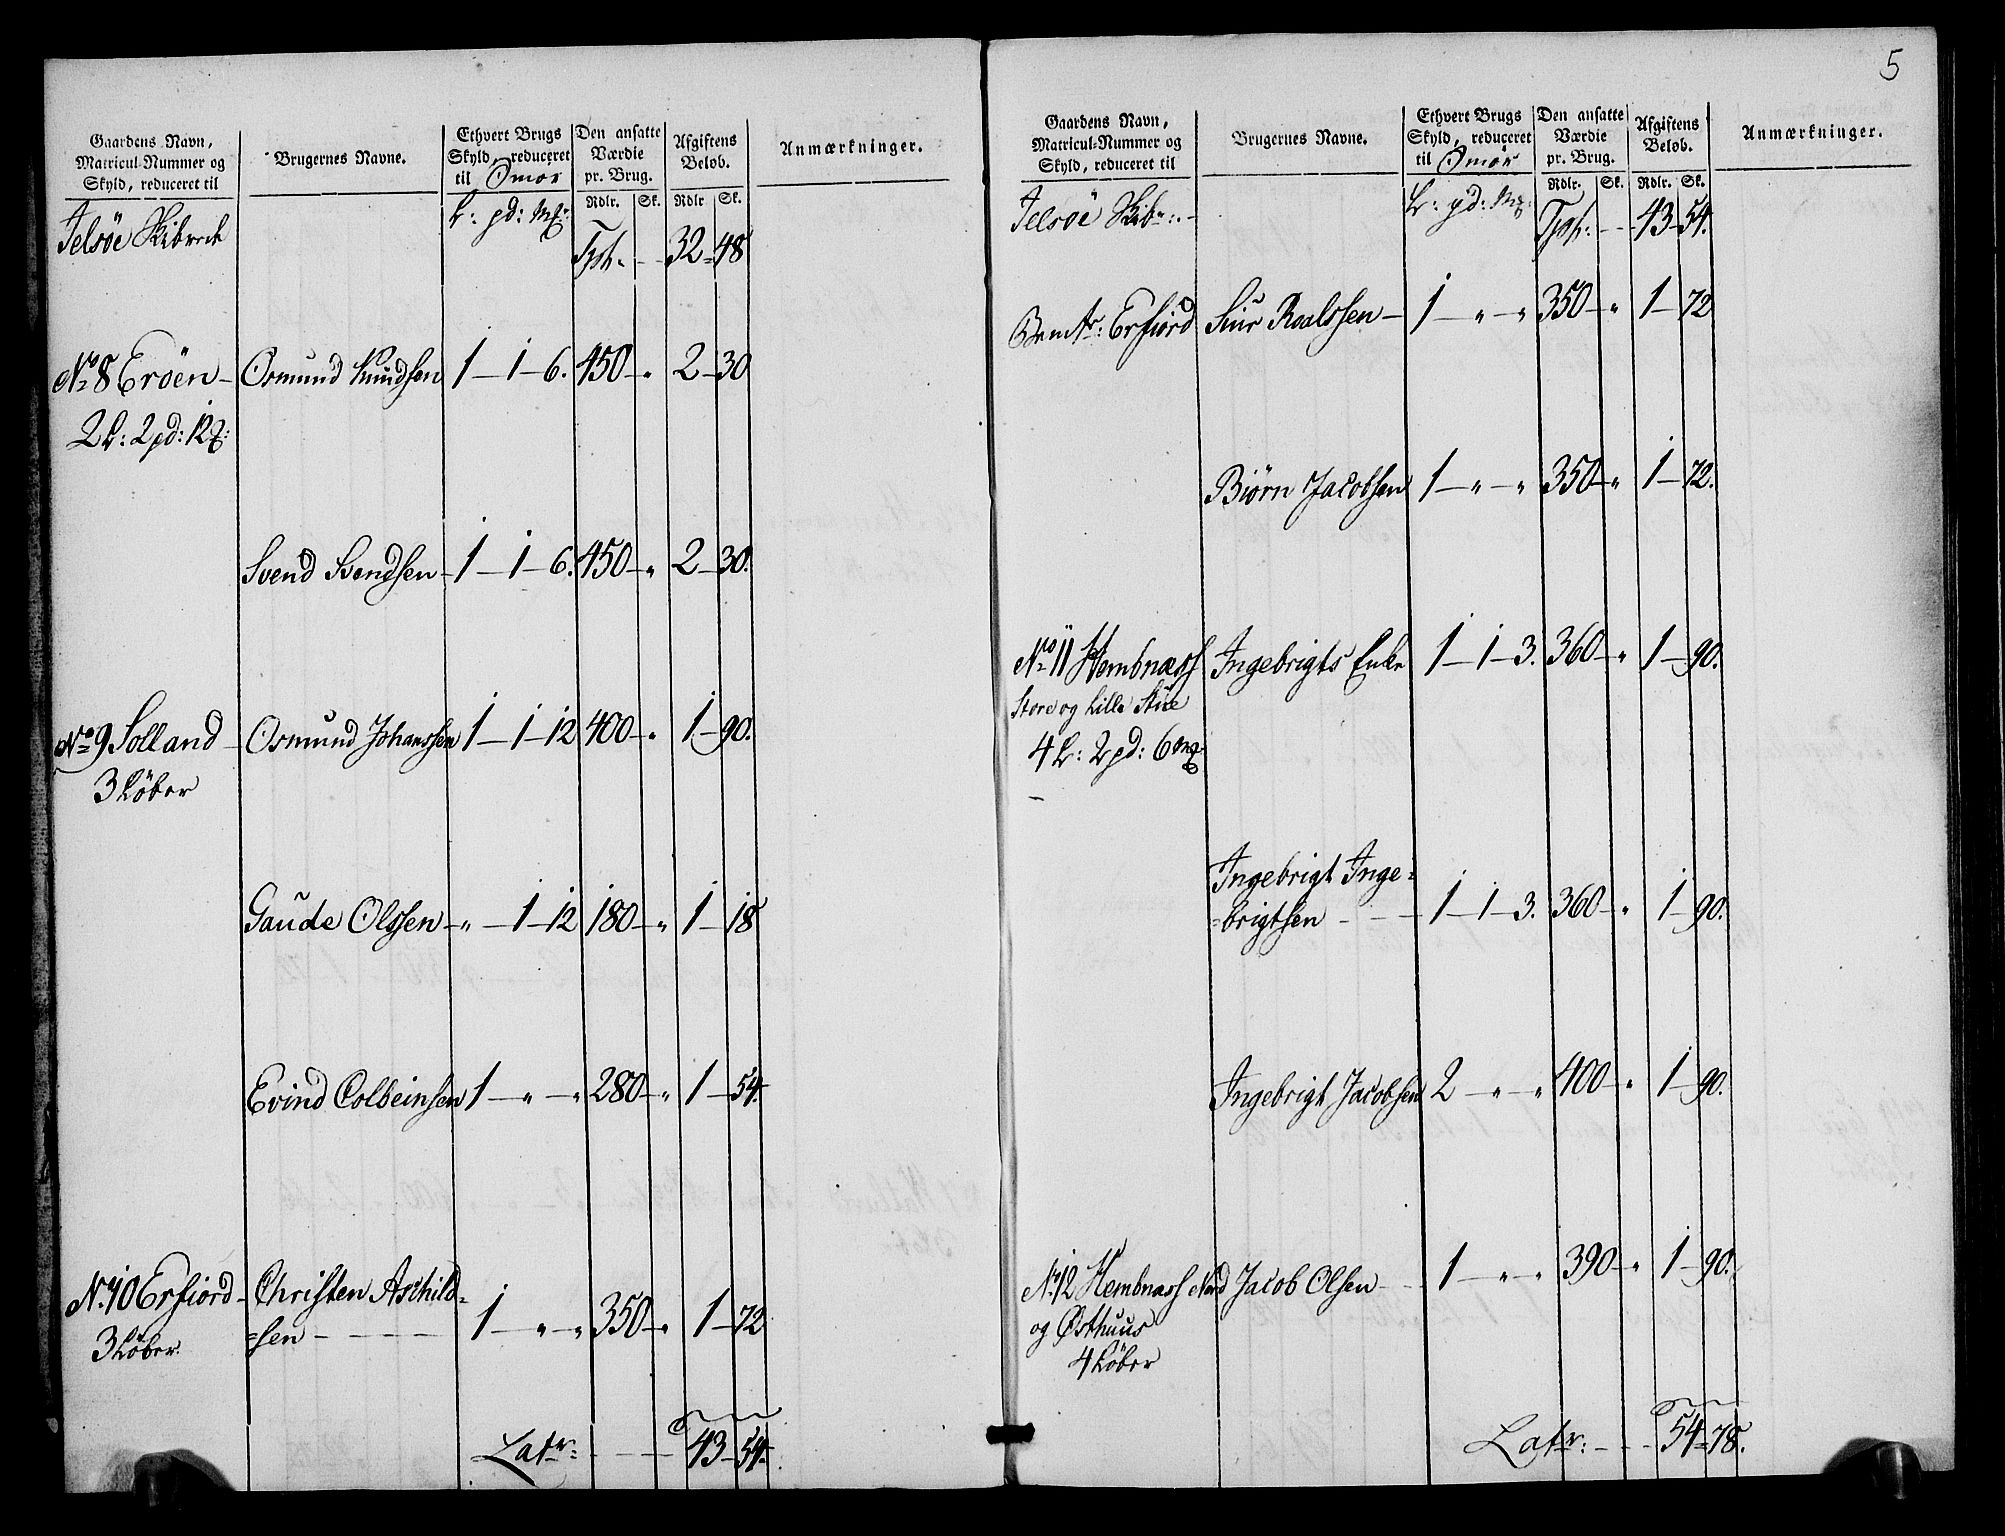 Gaardens Navn,
Matricul-Nummer og
Skyld, reduceret til
Brugernes Navne.
Ethvert Brugs
Skyld, reduceret
til Smør
Den ansatte
Værdie
pr. Brug.
Afgiftens
Beløb.
Anmærkninger.
Rdlr. Sk. Rdlr Sk.
L: pd: Mk:
Jelsöe Skibrede
Tpt. - - 32 - 48
No 8 Eröen - Osmund Knudsen 1 - 1 - 6. 450 - " 2 - 30
2 L: 2 pd: 12
Svend Svendsen - 1 - 1 - 6. 450 - " 2 - 30.
No 9 Solland - Osmund Johanssen 1 - 1 - 12 400 - " 1 - 90.
3 Löber
Gaude Olssen - " - 1 - 12 180 - " 1 - 18
Evind Colbeinsen 1 - " - " 280 - " 1 - 54
No 10 Erfiord - Christen Aschild=
=sen - - - - 1 - " - " 350 - " 1 - 72
3 Löber.
Latr: - - - 43 - 54
5
Gaardens Navn,
Matricul-Nummer og
Skyld, reduceret til
Brugernes Navne.
Ethvert Brugs
Skyld, reduceret
til Smör
Den ansatte
Værdie
pr. Brug.
Afgiftens
Beløb.
Anmærkninger.
Rdlr. Sk. Rdlr. Sk.
L: pd: Mk:
Jelsöe Skib: -
- - 43 - 54.
Erfiord Siur Roalssen - 1 - " - " 350 - " 1 - 72
Biörn Jacobsen 1 - " - " 350 - " 1 - 72.
No 11 Hembnæss Ingebrigts Enke 1 - 1 - 3. 360 - " 1 - 90.
Store og Lille Stüe
4 L: 2 pd: 6 mk
Ingebrigt Inge=
=brigtsen - - - 1 - 1 - 3. 360 - " 1 - 90.
Ingebrigt Jacobsen 2 - " - " 400 - " 1 - 90.
No 12 Hembnæss Nord Jacob Olsen - - 1 - " - " 390 - " 1 - 90.
og Østhuus
4 Löber
Latr: - - - 54 - 78.